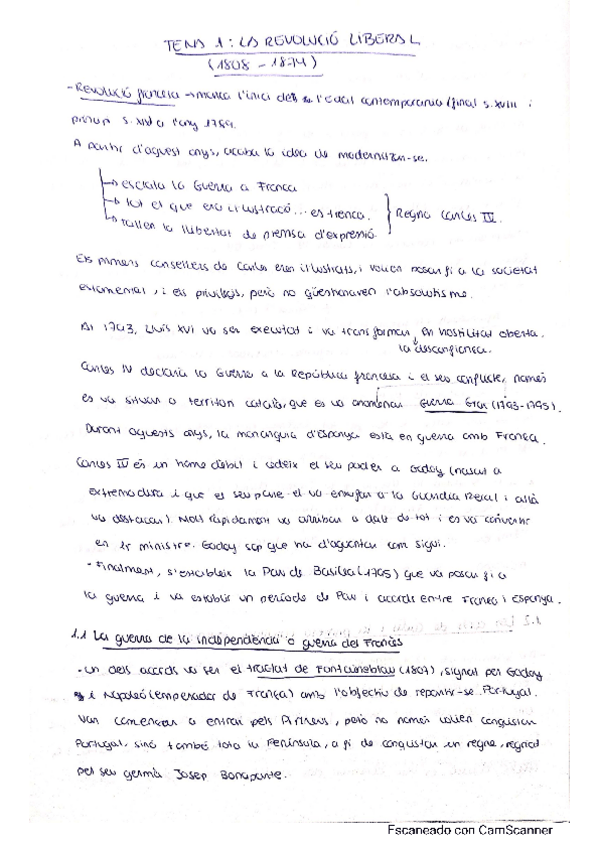 TEMA 1: LA REVOLUCIÓ LIBERAL
(1808 - 1874)
- Revolució francesa → marca l'inici de l'edat contemporània (final s. XVIII i
princip s. XIX) a l'any 1789.
A partir d'aquest anys, acaba la idea de modernitzar-se.
→ esclata la Guerra a França
→ tot el que era il·lustració... es trenca.
→ tallen la llibertat de premsa d'expressió
Regna Carles IV.
Els primers consellers de Carles eren il·lustrats, i volien posar fi a la societat
estamental, i els privilegis, però no qüestionaven l'absolutisme.
Al 1793, Lluís XVI va ser executat i va transformar en hostilitat oberta.
la desconfiança.
Carles IV declara la Guerra a la República francesa i el seu conflicte, només
es va situar a territori català, que es va anomenar Guerra Gran (1793-1795).
Durant aquests anys, la monarquia d'Espanya està en guerra amb França.
Carles IV és un home dèbil i cedeix el seu poder a Godoy (nascut a
extremadura i que el seu pare el va enviar a la Guardia Reial i allà
va destacar). Molt ràpidament va arribar a dalt de tot i es va convertir
en 1r ministre. Godoy sap que ha d'aguantar com sigui.
- Finalment, s'estableix la Pau de Basilea (1795) que va posar fi a
la guerra i va establir un període de Pau i acords entre França i Espanya.
1.1 La guerra de la independència o guerra del Francès
- Un dels acords va ser el tractat de Fontainebleau (1807), signat per Godoy
i Napoleó (emperador de França) amb l'objectiu de repartir-se Portugal.
Van començar a entrar pels Pirineus, però no només volien conquistar
Portugal, sinó també tota la Península, a fi de conquistar un regne, regnat
pel seu germà Josep Bonaparte.
Escaneado con CamScanner